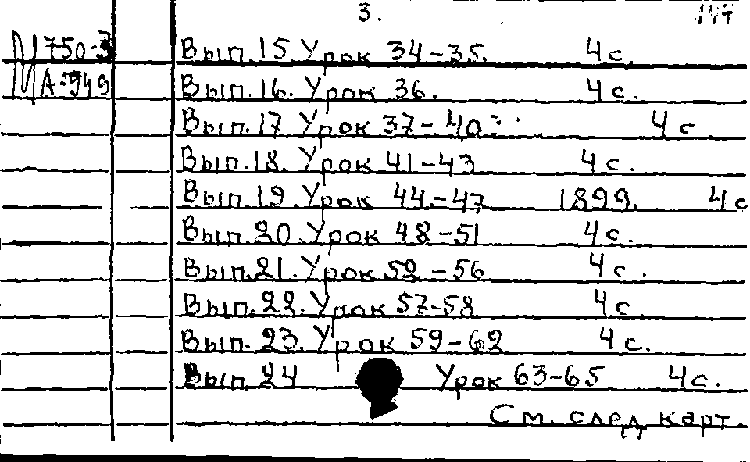 3.
М 750-3 Вып. 15. Урок 34-35. 4 с.
А-949 Вып. 16. Урок 36. 4 с.
Вып. 17. Урок 37-40. 4 с
Вып. 18. Урок 41-43 4 с.
Вып. 19. Урок 44-47 1899. 4 с
Вып. 20. Урок 48-51 4 с.
Вып. 21. Урок 52-56 4 с.
Вып. 22. Урок 57-58 4 с
Вып. 23. Урок 59-62 4 с.
Вып 24 Урок 63-65 4 с.
См. след карт.